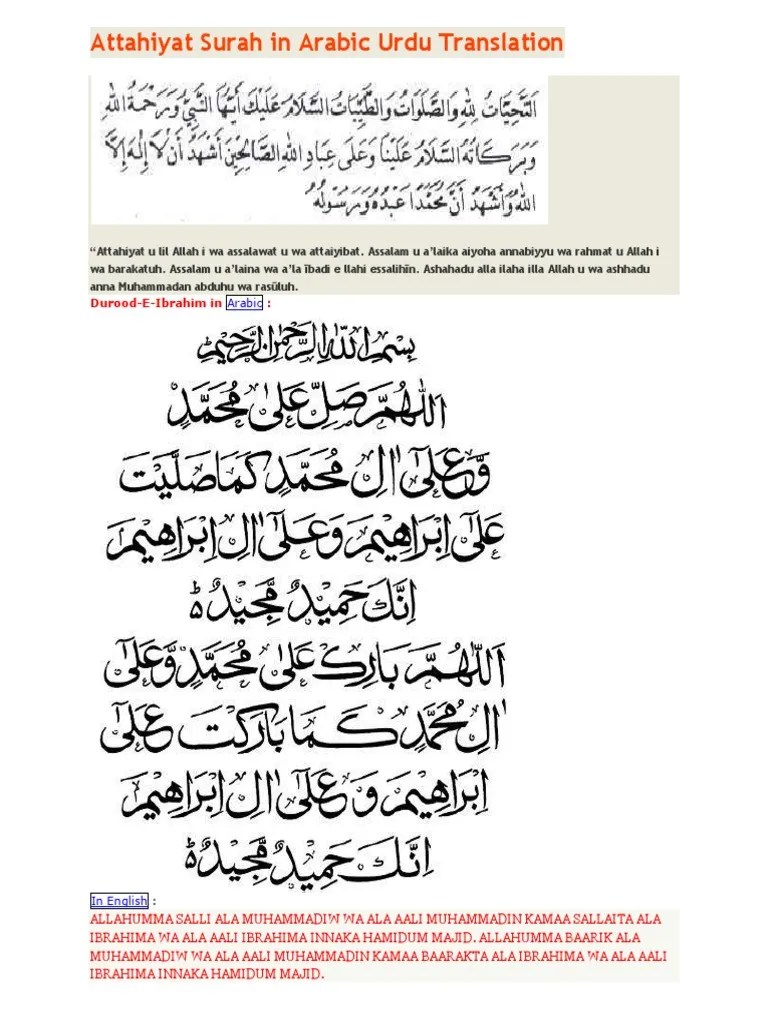 Attahiyat Surah in Arabic Urdu Translation
اَلتَّحِيَّاتُ لِلّٰهِ وَالصَّلَوَاتُ وَالطَّيِّبَاتُ السَّلَامُ عَلَيْكَ أَيُّهَا النَّبِيُّ وَرَحْمَةُ اللهِ
وَبَرَكَاتُهُ السَّلَامُ عَلَيْنَا وَعَلَى عِبَادِ اللهِ الصَّالِحِيْنَ أَشْهَدُ أَنْ لَا إِلٰهَ إِلَّا
اللهُ وَأَشْهَدُ أَنَّ مُحَمَّدًا عَبْدُهُ وَرَسُوْلُهُ
“Attahiyat u lil Allah i wa assalawat u wa attaiyibat. Assalam u a’laika aiyoha annabiyyu wa rahmat u Allah i
wa barakatuh. Assalam u a’laina wa a’la ībadi e llahi essalihīn. Ashahadu alla ilaha illa Allah u wa ashhadu
anna Muhammadan abduhu wa rasūluh.
Durood-E-Ibrahim in Arabic :
بِسْمِ اللهِ الرَّحْمٰنِ الرَّحِيْمِ
اَللّٰهُمَّ صَلِّ عَلٰى مُحَمَّدٍ
وَّعَلٰٓى اٰلِ مُحَمَّدٍ كَمَا صَلَّيْتَ
عَلٰٓى اِبْرَاهِيْمَ وَعَلٰٓى اٰلِ اِبْرَاهِيْمَ
اِنَّكَ حَمِيْدٌ مَّجِيْدٌ ؕ
اَللّٰهُمَّ بَارِكْ عَلٰى مُحَمَّدٍ وَّعَلٰٓى
اٰلِ مُحَمَّدٍ كَمَا بَارَكْتَ عَلٰٓى
اِبْرَاهِيْمَ وَعَلٰٓى اٰلِ اِبْرَاهِيْمَ
اِنَّكَ حَمِيْدٌ مَّجِيْدٌ ؕ
In English :
ALLAHUMMA SALLI ALA MUHAMMADIW WA ALA AALI MUHAMMADIN KAMAA SALLAITA ALA
IBRAHIMA WA ALA AALI IBRAHIMA INNAKA HAMIDUM MAJID. ALLAHUMMA BAARIK ALA
MUHAMMADIW WA ALA AALI MUHAMMADIN KAMAA BAARAKTA ALA IBRAHIMA WA ALA AALI
IBRAHIMA INNAKA HAMIDUM MAJID.